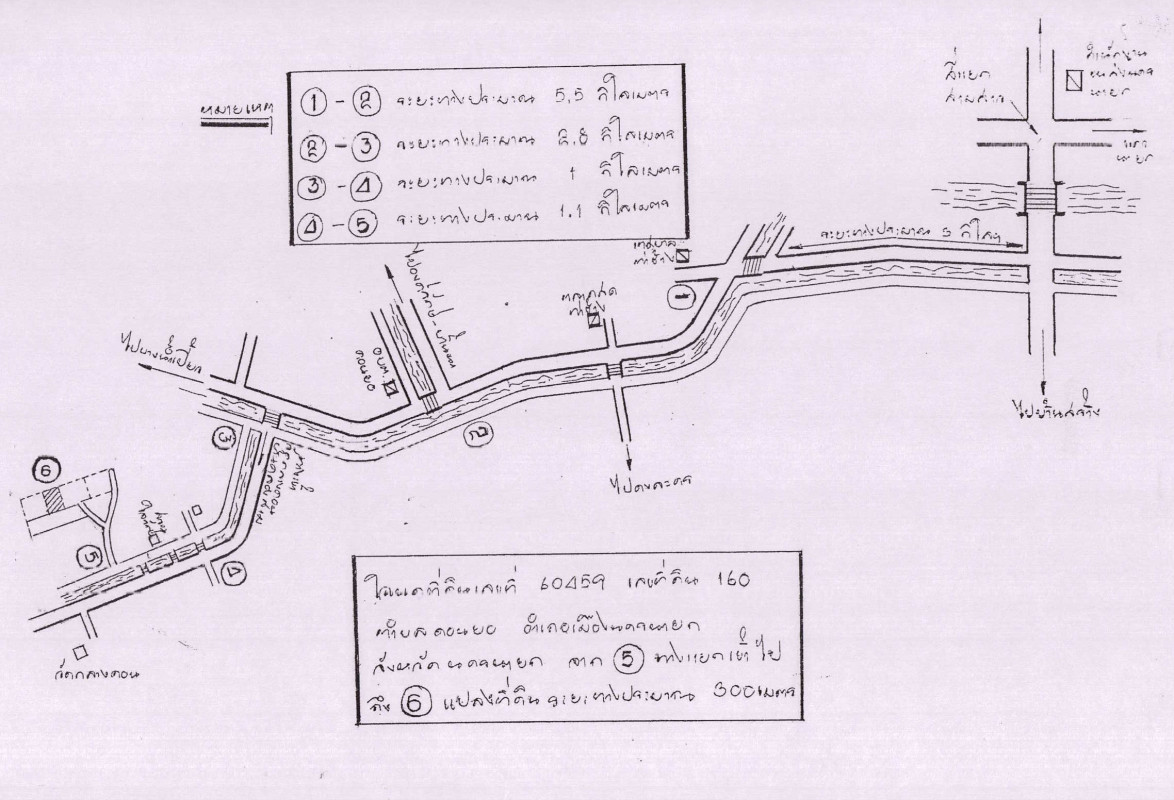 หมายเหตุ
1 - 2 ระยะทางประมาณ 5.5 กิโลเมตร
2 - 3 ระยะทางประมาณ 2.8 กิโลเมตร
3 - 4 ระยะทางประมาณ 1 กิโลเมตร
4 - 5 ระยะทางประมาณ 1.1 กิโลเมตร
สี่แยก
สามสาว
สำนักงาน
ขนส่งนคร
นายก
นคร
นายก
ระยะทางประมาณ 3 กิโลฯ
เทศบาล
ท่าช้าง
1
อบต.
ดอนยอ
ไปบางน้ำเปรี้ยว
ไปบ้านสร้าง
2
3
ไปดงละคร
6
5
4
วัดกลางดอน
โฉนดที่ดินเลขที่ 60459 เลขที่ดิน 160
ตำบลดอนยอ อำเภอเมืองนครนายก
จังหวัดนครนายก จาก 5 ทางแยกเข้าไป
ถึง 6 แปลงที่ดินระยะทางประมาณ 300 เมตร